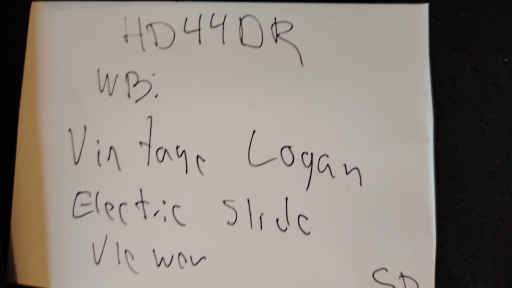 HD44DR
WB:
Vintage Logan
Electric Slide
Viewer
SD